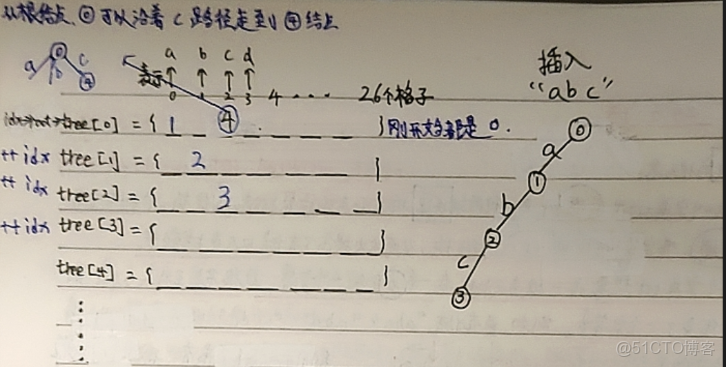 从根结点 ⓪ 可以沿着 c 路径走到 ④ 结点
a b c 0 4
a b c d
表示 ↑ ↑ ↑ ↑
0 1 2 3 4 ···· 26个格子
tree[0] = { 1 ④ } 刚开始都是 0.
++ idx tree[1] = { 2 }
++ idx tree[2] = { 3 }
++ idx tree[3] = { }
tree[4] = { }
插入
"abc"
0
a
1
b
2
c
3
@51CTO博客